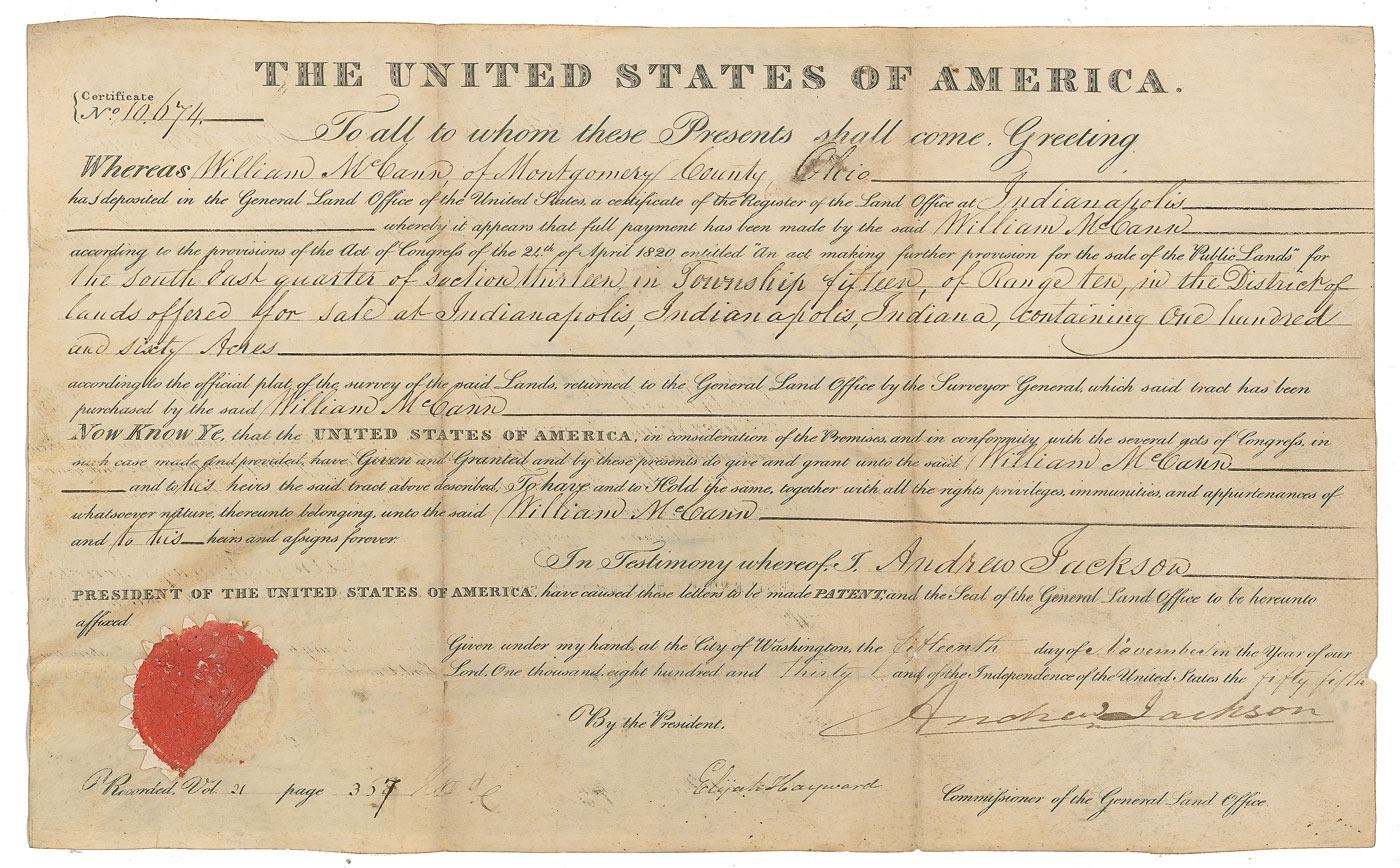 THE UNITED STATES OF AMERICA.
Certificate
No. 10.674.
To all to whom these Presents shall come, Greeting
Whereas William McCann of Montgomery County Ohio
has deposited in the General Land Office of the United States, a certificate of the Register of the Land Office at Indianapolis
whereby it appears that full payment has been made by the said William McCann
according to the provisions of the Act of Congress of the 24th of April 1820 entitled "An act making further provision for the sale of the Public Lands" for
the South East quarter of Section thirteen, in Township fifteen, of Range ten, in the District of
lands offered for sale at Indianapolis, Indianapolis, Indiana, containing One hundred
and sixty Acres
according to the official plat of the survey of the said Lands, returned to the General Land Office by the Surveyor General, which said tract has been
purchased by the said William McCann
Now Know Ye, that the UNITED STATES OF AMERICA, in consideration of the Premises, and in conformity with the several acts of Congress, in
such case made and provided, have Given and Granted and by these presents do give and grant unto the said William McCann
and to his heirs the said tract above described; To have and to Hold the same, together with all the rights privileges, immunities, and appurtenances of
whatsoever nature, thereunto belonging, unto the said William McCann
and to his heirs and assigns forever.
In Testimony whereof, I, Andrew Jackson
PRESIDENT OF THE UNITED STATES OF AMERICA, have caused these letters to be made PATENT, and the Seal of the General Land Office to be hereunto
affixed.
Given under my hand, at the City of Washington, the fifteenth day of November in the Year of our
Lord, One thousand eight hundred and thirty and of the Independence of the United States the fifty fifth
Andrew Jackson
By the President.
Elijah Hayward
Commissioner of the General Land Office.
Recorded, Vol. 21 page 357